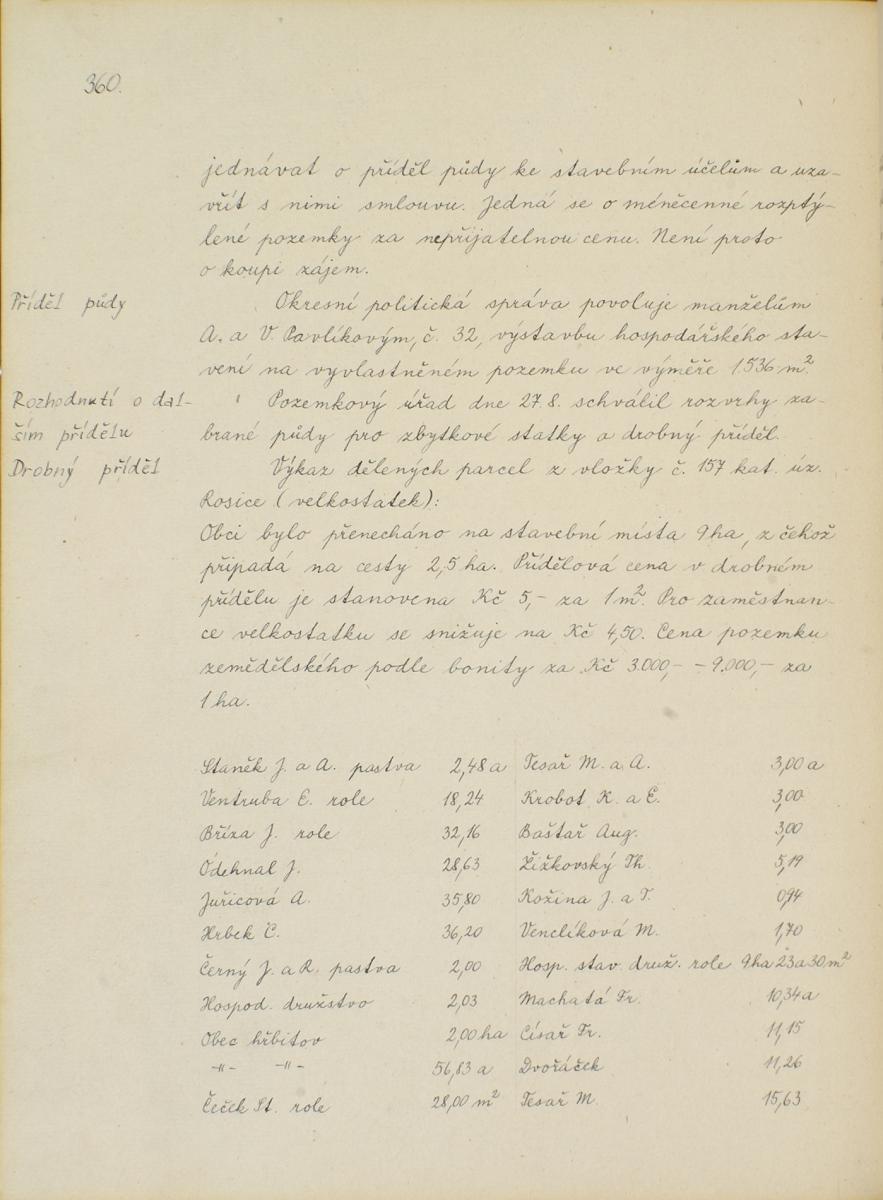 360.
jednávat o příděl půdy ke stavebním účelům a uza-
vřít s nimi smlouvu. Jedná se o méněcenné rozptý-
lené pozemky za nepřijatelnou cenu. Není proto
o koupi zájem.
Příděl půdy
Okresní politická správa povoluje manželům
A. a V. Pavlíkovým, č. 32, výstavbu hospodářského sta-
vení na vyvlastněném pozemku ve výměře 1.536 m².
Rozhodnutí o dal-
ším přídělu
Pozemkový úřad dne 27.8. schválil rozvrhy za-
brané půdy pro zbytkové statky a drobný příděl.
Drobný příděl
Výkaz dělených parcel z vložky č. 157 kat. úz.
Rosice (velkostatek):
Obci bylo přenecháno na stavební místa 9ha, z čehož
připadá na cesty 2,5 ha. Přídělová cena v drobném
přídělu je stanovena Kč 5,- za 1m². Pro zaměstnan-
ce velkostatku se snižuje na Kč 4,50. Cena pozemku
zemědělského podle bonity za Kč 3.000,- - 9.000,- za
1 ha.
Staněk J. a A. pastva 2,48 a Tesař M. a A. 3,00 a
Ventruba E. role 18,24 Krobot K. a E. 3,00
Bříza J. role 32,16 Baštař Aug. 3,00
Odehnal J. 28,63 Žižkovský Th. 5,19
Juřicová A. 35,80 Kožina J. a T. 0,94
Hrbek C. 36,20 Venclíková M. 1,70
Černý J. a R. pastva 2,00 Hosp. stav. druž. role 9ha 23a 30m²
Hospod. družstvo 2,03 Machatá Fr. 10,34 a
Obec hřbitov 2,00 ha Císař Fr. 11,15
-"- -"- 56,83 a Dvořáček 11,26
Čeček St. role 28,00 m² Tesař M. 15,63